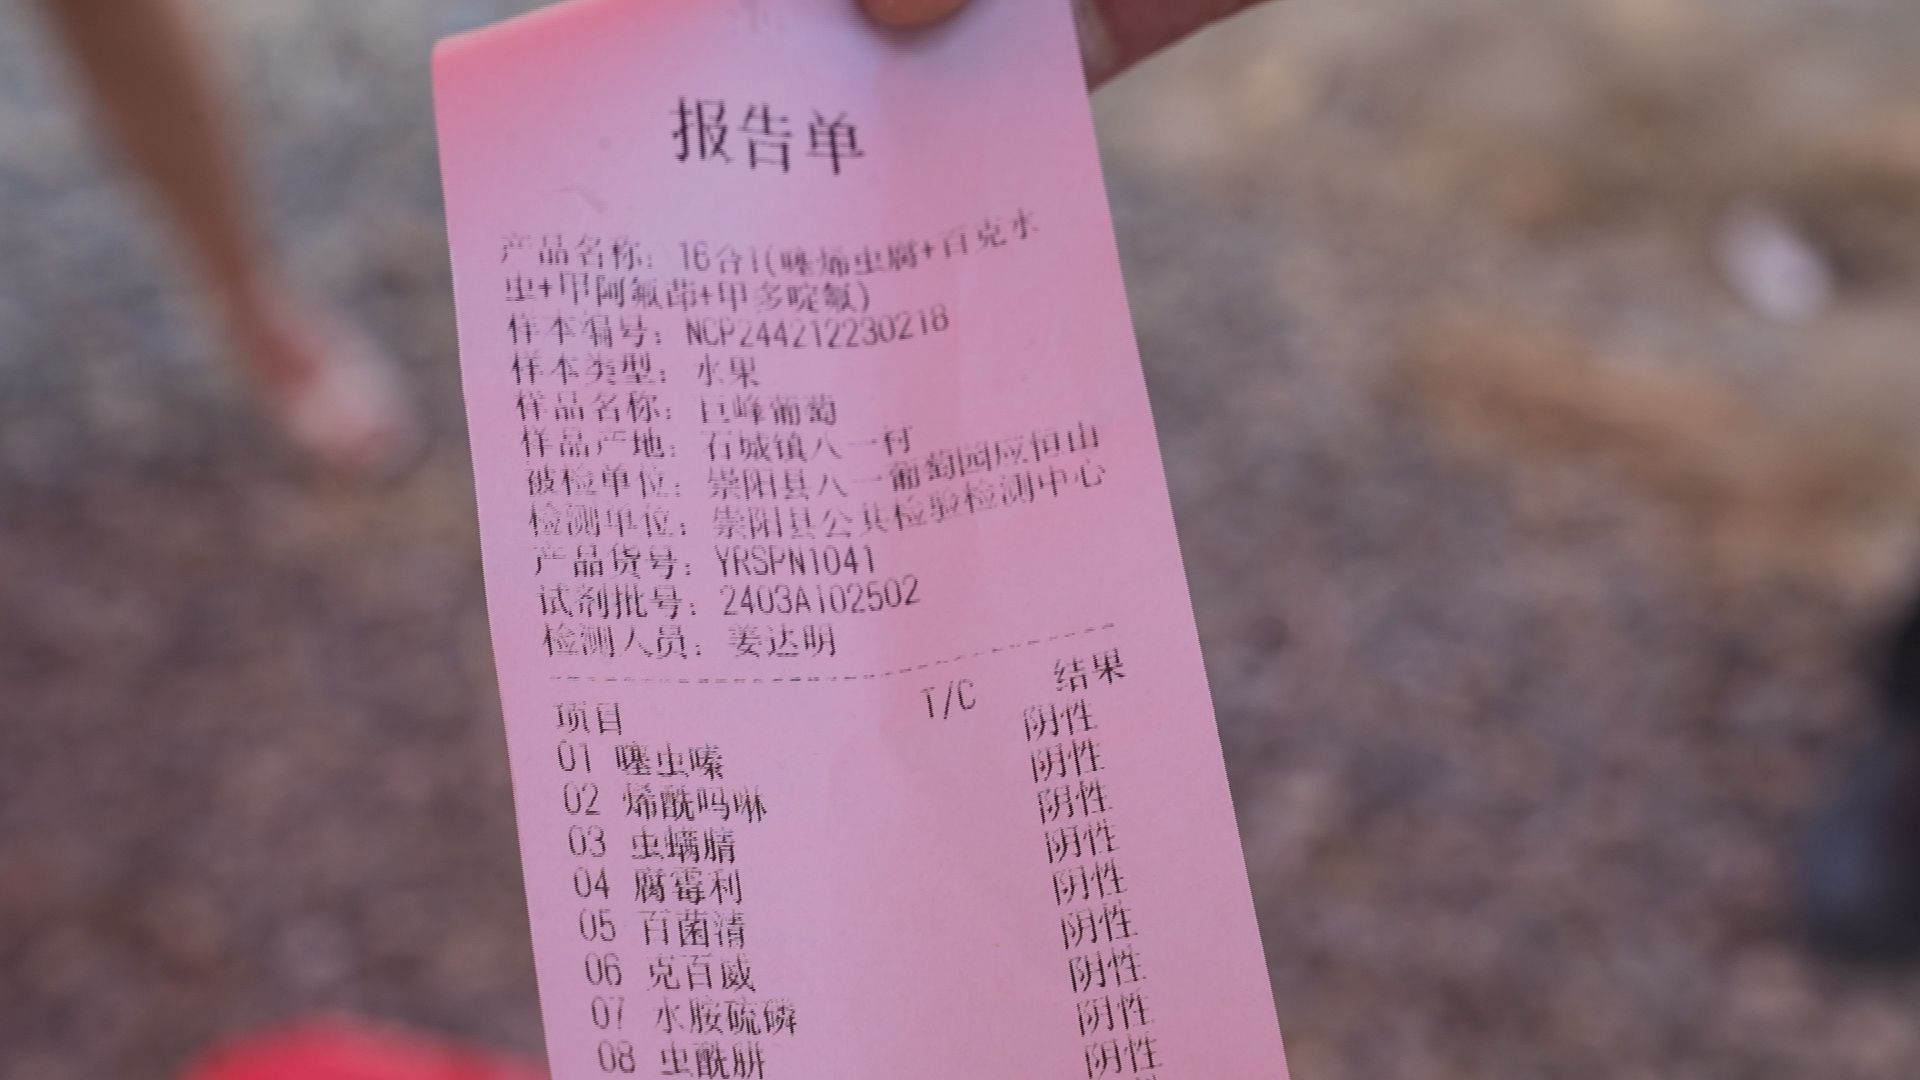 报告单
产品名称: 16合1(噻烯虫腐+百克水
虫+甲阿氟茚+甲多啶氰)
样本编号: NCP244212230218
样本类型: 水果
样品名称: 巨峰葡萄
样品产地: 石城镇八一村
被检单位: 崇阳县八一葡萄园应恒山
检测单位: 崇阳县公共检验检测中心
产品货号: YRSPN1041
试剂批号: 2403A102502
检测人员: 姜达明
项目 T/C 结果
01 噻虫嗪 阴性
02 烯酰吗啉 阴性
03 虫螨腈 阴性
04 腐霉利 阴性
05 百菌清 阴性
06 克百威 阴性
07 水胺硫磷 阴性
08 虫酰肼 阴性
阴性